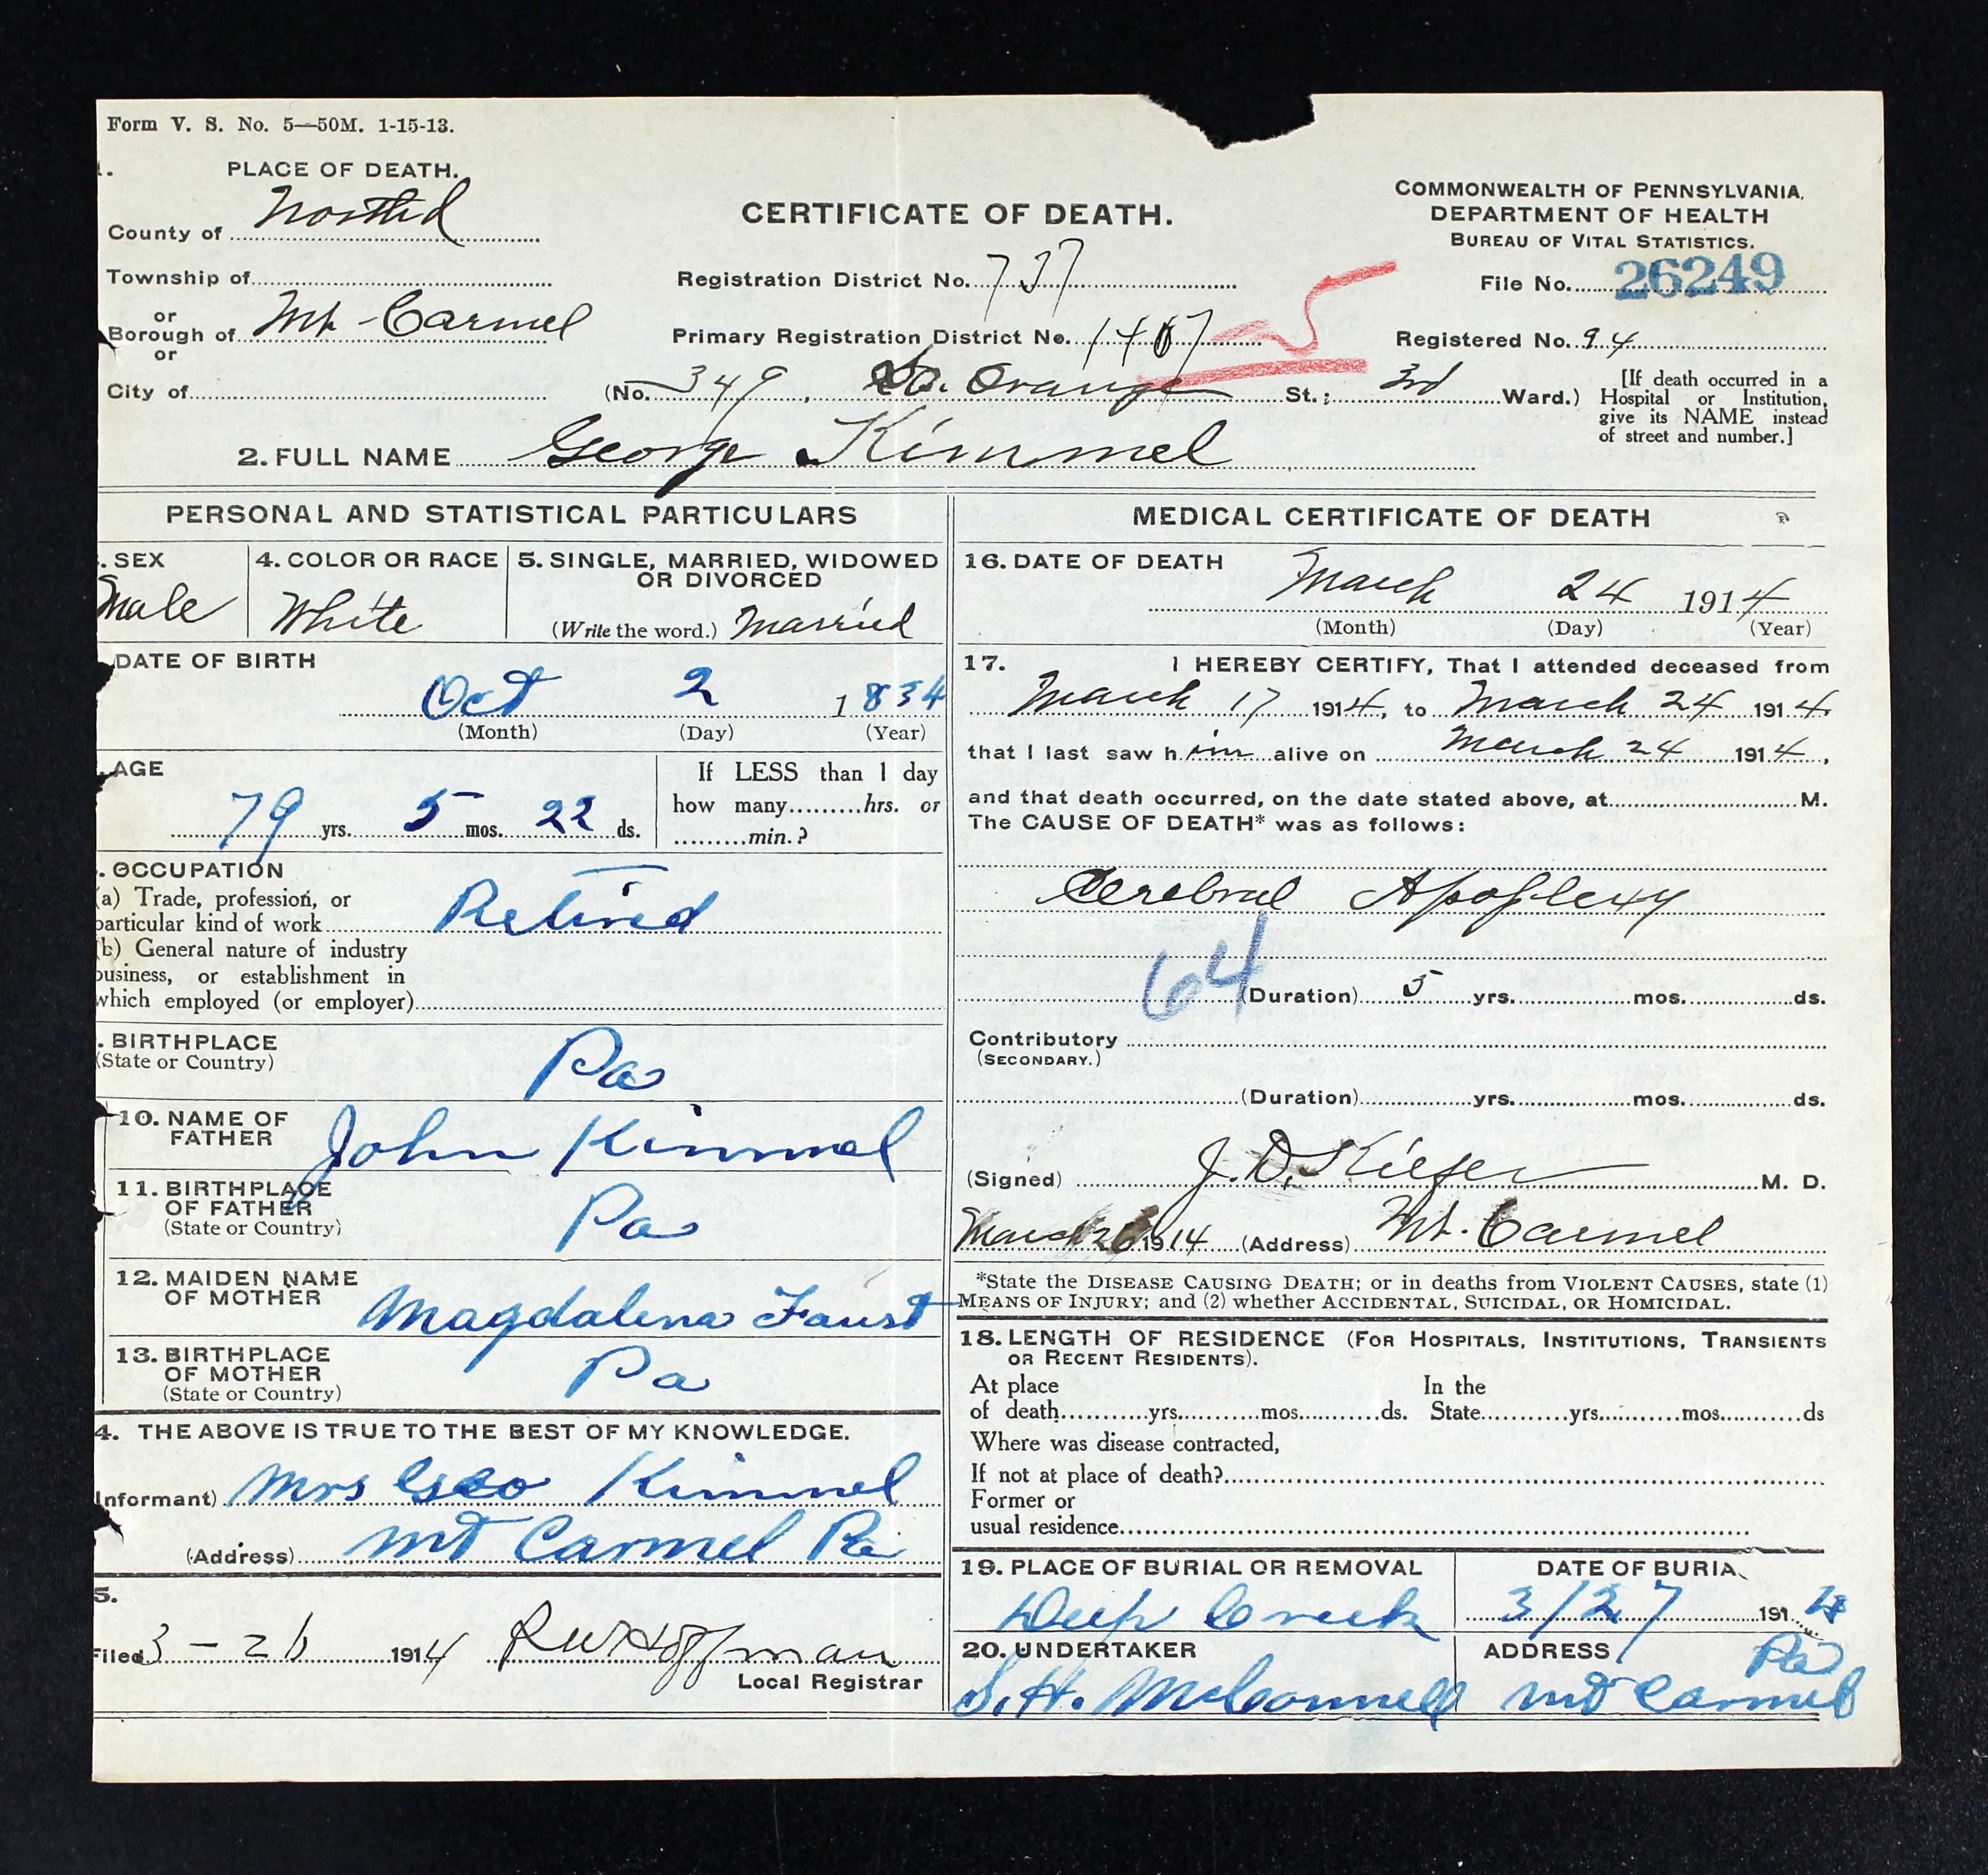 Form V. S. No. 5—50M. 1-15-13.
1. PLACE OF DEATH.
County of Northd
Township of
or
Borough of Mt. Carmel
or
City of
CERTIFICATE OF DEATH.
Registration District No. 737
Primary Registration District No. 1407
(No. 349, So. Orange St.; 3rd Ward.)
COMMONWEALTH OF PENNSYLVANIA.
DEPARTMENT OF HEALTH
BUREAU OF VITAL STATISTICS.
File No. 26249
Registered No. 94
[If death occurred in a
Hospital or Institution,
give its NAME instead
of street and number.]
2. FULL NAME George Kimmel
PERSONAL AND STATISTICAL PARTICULARS
. SEX
Male
4. COLOR OR RACE
White
5. SINGLE, MARRIED, WIDOWED
OR DIVORCED
(Write the word.) Married
DATE OF BIRTH
Oct 2 1834
(Month) (Day) (Year)
AGE
79 yrs. 5 mos. 22 ds.
If LESS than 1 day
how many.........hrs. or
.........min.?
. OCCUPATION
(a) Trade, profession, or
particular kind of work Retired
(b) General nature of industry
business, or establishment in
which employed (or employer)
. BIRTHPLACE
(State or Country)
Pa
10. NAME OF
FATHER
John Kimmel
11. BIRTHPLACE
OF FATHER
(State or Country)
Pa
12. MAIDEN NAME
OF MOTHER
Magdalena Faust
13. BIRTHPLACE
OF MOTHER
(State or Country)
Pa
4. THE ABOVE IS TRUE TO THE BEST OF MY KNOWLEDGE.
Informant) Mrs Geo Kimmel
(Address) Mt Carmel Pa
5.
Filed 3-26 1914 R W Hoffman
Local Registrar
MEDICAL CERTIFICATE OF DEATH
16. DATE OF DEATH
March 24 1914
(Month) (Day) (Year)
17. I HEREBY CERTIFY, That I attended deceased from
March 17 1914, to March 24 1914,
that I last saw him alive on March 24 1914,
and that death occurred, on the date stated above, at M.
The CAUSE OF DEATH* was as follows:
Cerebral Apoplexy
64
(Duration) 5 yrs. mos. ds.
Contributory
(SECONDARY.)
(Duration) yrs. mos. ds.
(Signed) J. D. Kiefer M. D.
March 26 1914 (Address) Mt. Carmel
*State the DISEASE CAUSING DEATH; or in deaths from VIOLENT CAUSES, state (1)
MEANS OF INJURY; and (2) whether ACCIDENTAL, SUICIDAL, OR HOMICIDAL.
18. LENGTH OF RESIDENCE (FOR HOSPITALS, INSTITUTIONS, TRANSIENTS
OR RECENT RESIDENTS).
At place In the
of death yrs. mos. ds. State yrs. mos. ds
Where was disease contracted,
If not at place of death?
Former or
usual residence
19. PLACE OF BURIAL OR REMOVAL
Deep Creek
DATE OF BURIA
3/27 1914
20. UNDERTAKER
S. H. McConnell
ADDRESS
Pa
Mt Carmel